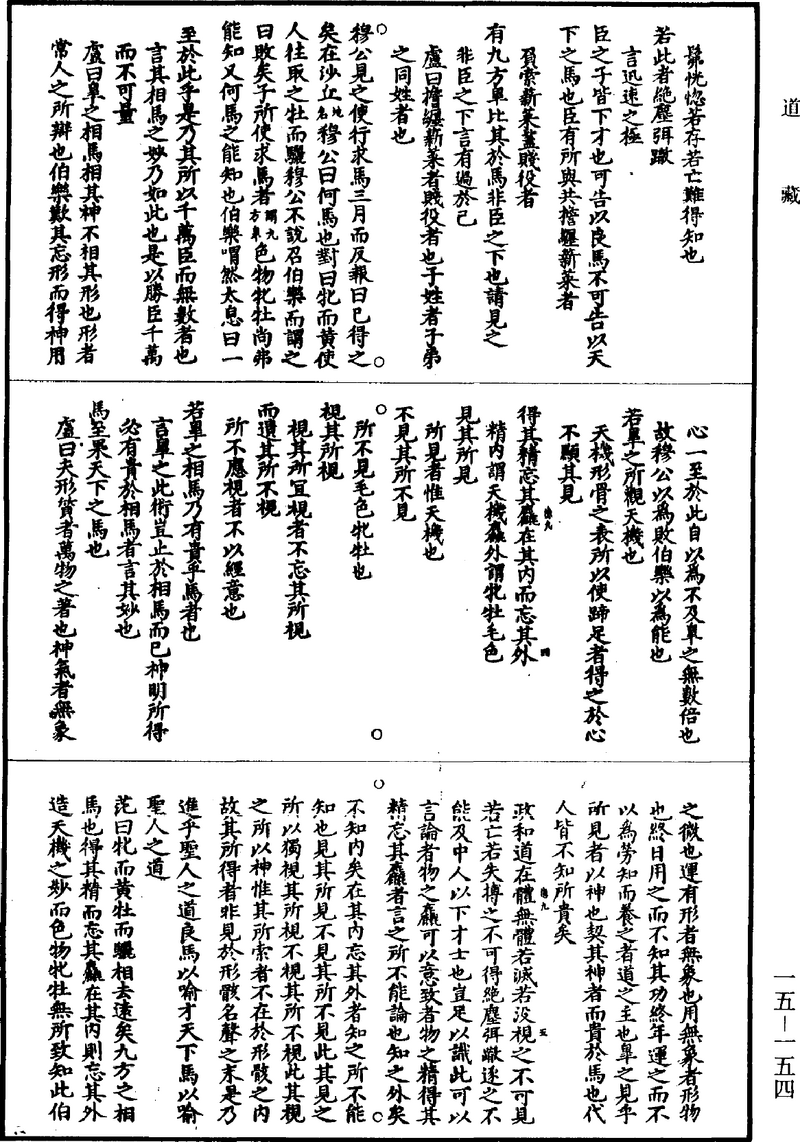 道藏
一五－一五四
髴恍惚若存若亡難得知也
若此者絕塵弭𨅊
言迅速之極
臣之子皆下才也可告以良馬不可告以天
下之馬也臣有所與共擔纆薪菜者
負索薪菜蓋賤役者
有九方臯比其於馬非臣之下也請見之
非臣之下言有過於己
盧曰擔纆薪菜者賤役者也子姓者子弟
之同姓者也
穆公見之使行求馬三月而反報曰已得之
矣在沙丘地名穆公曰何馬也對曰牝而黃使
人往取之牡而驪穆公不說召伯樂而謂之
曰敗矣子所使求馬者謂九方臯色物牝牡尚弗
能知又何馬之能知也伯樂喟然太息曰一
至於此乎是乃其所以千萬臣而無數者也
言其相馬之妙乃如此也是以勝臣千萬
而不可量
盧曰臯之相馬相其神不相其形也形者
常人之所辯也伯樂歎其忘形而得神用
心一至於此自以為不及臯之無數倍也
故穆公以為敗伯樂以為能也
若臯之所觀天機也
天機形骨之表所以使蹄足者得之於心
不顯其見
得其精忘其麤在其內而忘其外
精內謂天機麤外謂牝牡毛色
見其所見
所見者惟天機也
不見其所不見
所不見毛色牝牡也
視其所視
視其所宜視者不忘其所視
而遺其所不視
所不應視者不以經意也
若臯之相馬乃有貴乎馬者也
言臯之此術豈止於相馬而已神明所得
必有貴於相馬者言其妙也
馬至果天下之馬也
盧曰夫形質者萬物之著也神氣者無象
之微也運有形者無象也用無象者形物
也終日用之而不知其功終年運之而不
以為勞知而養之者道之主也臯之見乎
所見者以神也契其神者而貴於馬也代
人皆不知所貴矣
政和道在體無體若滅若没視之不可見
若亡若失摶之不可得絕塵弭𨅊逐之不
能及中人以下才士也豈足以識此可以
言論者物之麤可以意致者物之精得其
精忘其麤者言之所不能論也知之外矣
不知內矣在其內忘其外者知之所不能
知也見其所見不見其所不見此其見之
所以獨視其所視不視其所不視此其視
之所以神惟其所索者不在於形骸之內
故其所得者非見於形骸名聲之末是乃
進乎聖人之道良馬以喻才天下馬以喻
聖人之道
范曰牝而黃牡而驪相去遠矣九方之相
馬也得其精而忘其麤在其內則忘其外
造天機之妙而色物牝牡無所致知此伯